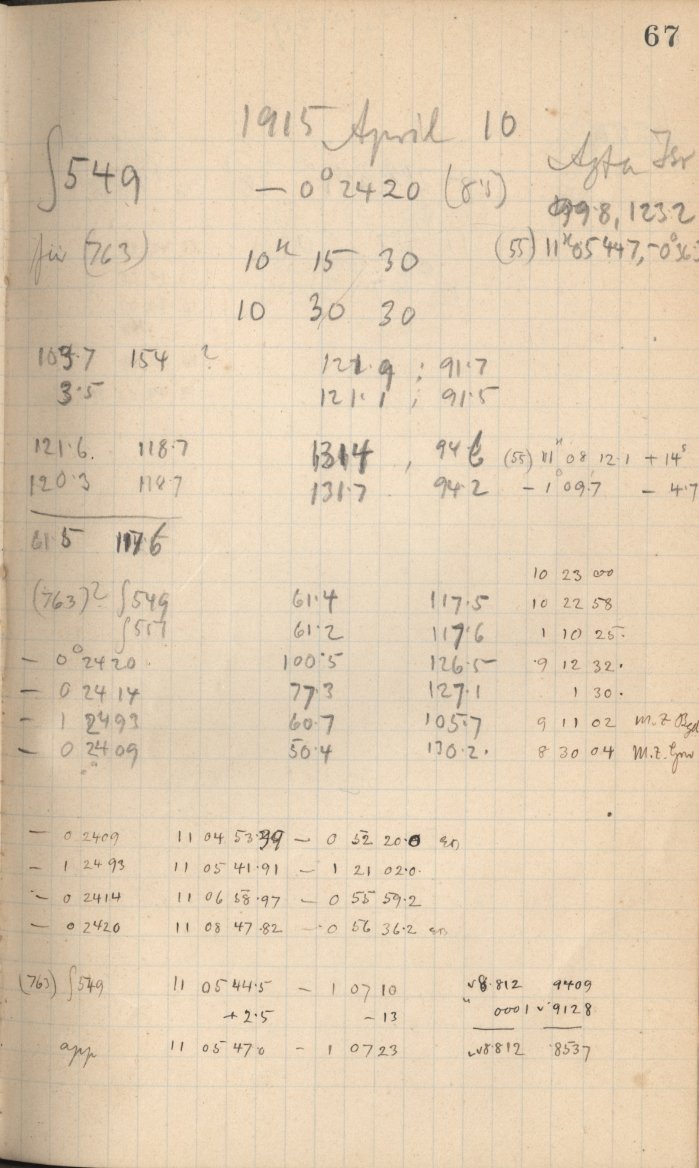 67
1915 April 10
∫549 — 0° 2420 (85)
998, 1232
für (763) 10ʰ 15 30 (55) 11ʰ 05 447, -0°
10 30 30
103.7 154 ? 121.9 ; 91.7
3.5 121.1 ; 91.5
121.6. 118.7 1314 , 946 (55) 11ʰ 08 12.1 + 14ˢ
120.3 118.7 131.7 94.2 — 1° 09.7 — 4.7
61.5 117.6
10 23 00
(763)? ∫549 61.4 117.5 10 22 58
∫557 61.2 117.6 1 10 25.
— 0° 2420 100.5 126.5 9 12 32.
— 0 2414 77.3 127.1 1 30.
— 1 2493 60.7 105.7 9 11 02 M.Z.
— 0 2409 50.4 130.2. 8 30 04 M.Z. Grw
— 0 2409 11 04 53.39 — 0 52 20.0
— 1 2493 11 05 41.91 — 1 21 02.0.
— 0 2414 11 06 58.97 — 0 55 59.2
— 0 2420 11 08 47.82 — 0 56 36.2
(763) ∫549 11 05 44.5 — 1 07 10 8.812 9409
+ 2.5 — 13 0001 9128
app 11 05 47.0 — 1 07 23 8.812 8537